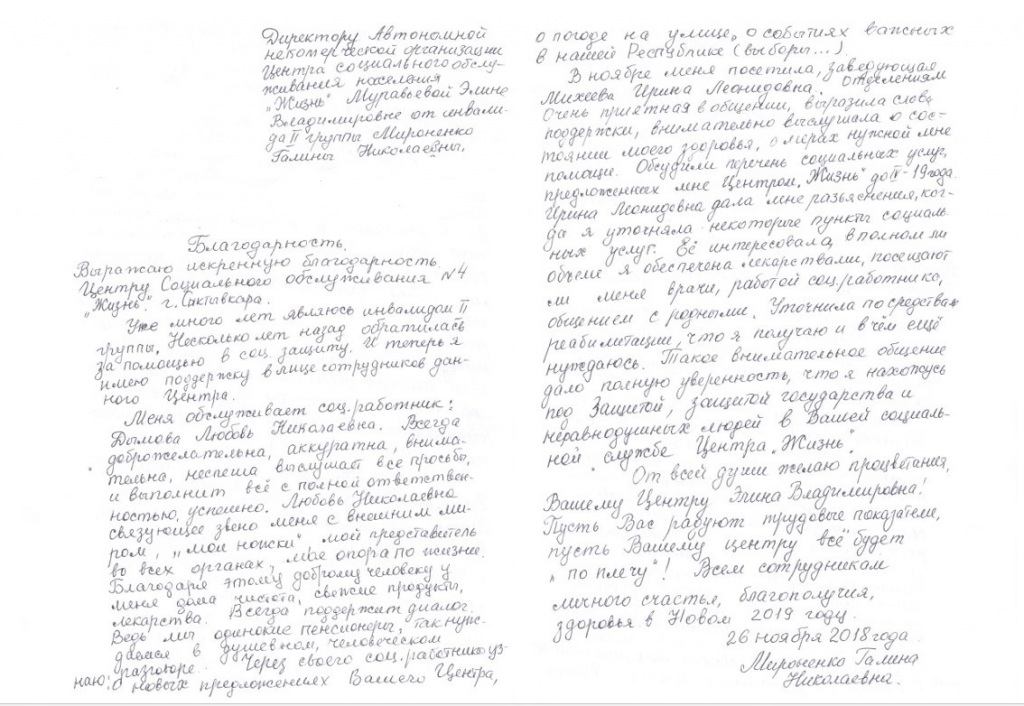 Директору Автономной
некомерческой организации
Центра социального обслу-
живания населения
"Жизнь" Муравьевой Элине
Владимировне от инвали-
да II группы Мироненко
Галины Николаевны.
Благодарность.
Выражаю искренную благодарность
Центру Социального обслуживания №4
"Жизнь". г. Сыктывкара.
Уже много лет являюсь инвалидом II
группы. Несколько лет назад обратилась
за помощью в соц. защиту. И теперь я
имею поддержку в лице сотрудников дан-
ного Центра.
Меня обслуживает соц. работник:
Дымова Любовь Николаевна. Всегда
доброжелательна, аккуратна, внима-
тельна, неспеша выслушает все просьбы,
и выполнит всё с полной ответствен-
ностью, успешно. Любовь Николаевна
связующее звено меня с внешним ми-
ром, "мои ножки" мой представитель
во всех органах, моя опора по жизни.
Благодаря этому доброму человеку у
меня дома чистота, свежие продукты,
лекарства. Всегда поддержит диалог.
Ведь мы, одинокие пенсионеры, так нуж-
даемся в душевном, человеческом
разговоре. Через своего соц. работника уз-
наю: о новых предложениях Вашего Центра,
о погоде на улице, о событиях важных
в нашей Республике (выборы...)
В ноябре меня посетила, заведующая
отделениям
Михеева Ирина Леонидовна.
Очень приятная в общении, выразила слова
поддержки, внимательно выслушала о сос-
тоянии моего здоровья, о мерах нужной мне
помощи. Обсудили перечень социальных услуг,
предложенных мне Центром "Жизнь" до - 19 года.
Ирина Леонидовна дала мне разъяснения, ког-
да я уточняла некоторые пункты социаль-
ных услуг. Её интересовало, в полном ли
объеме я обеспечена лекарствами, посещают
ли меня врачи, работой соц. работника,
общением с родными. Уточнила по средствам
реабилитации, что я получаю и в чём ещё
нуждаюсь. Такое внимательное общение
дало полную уверенность, что я нахожусь
под Защитой, защитой государства и
неравнодушных людей в Вашей социаль-
ной службе Центра "Жизнь".
От всей души желаю процветания,
Вашему Центру Элина Владимировна!
Пусть Вас радуют трудовые показатели,
пусть Вашему центру всё будет
"по плечу"! Всем сотрудникам
личного счастья, благополучия,
здоровья в Новом 2019 году.
26 ноября 2018 года.
Мироненко Галина
Николаевна.